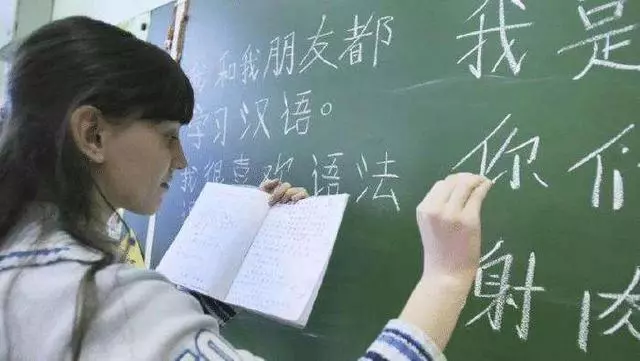 我和我朋友都
学习汉语。
我很喜欢语法
我是
你们
射肉